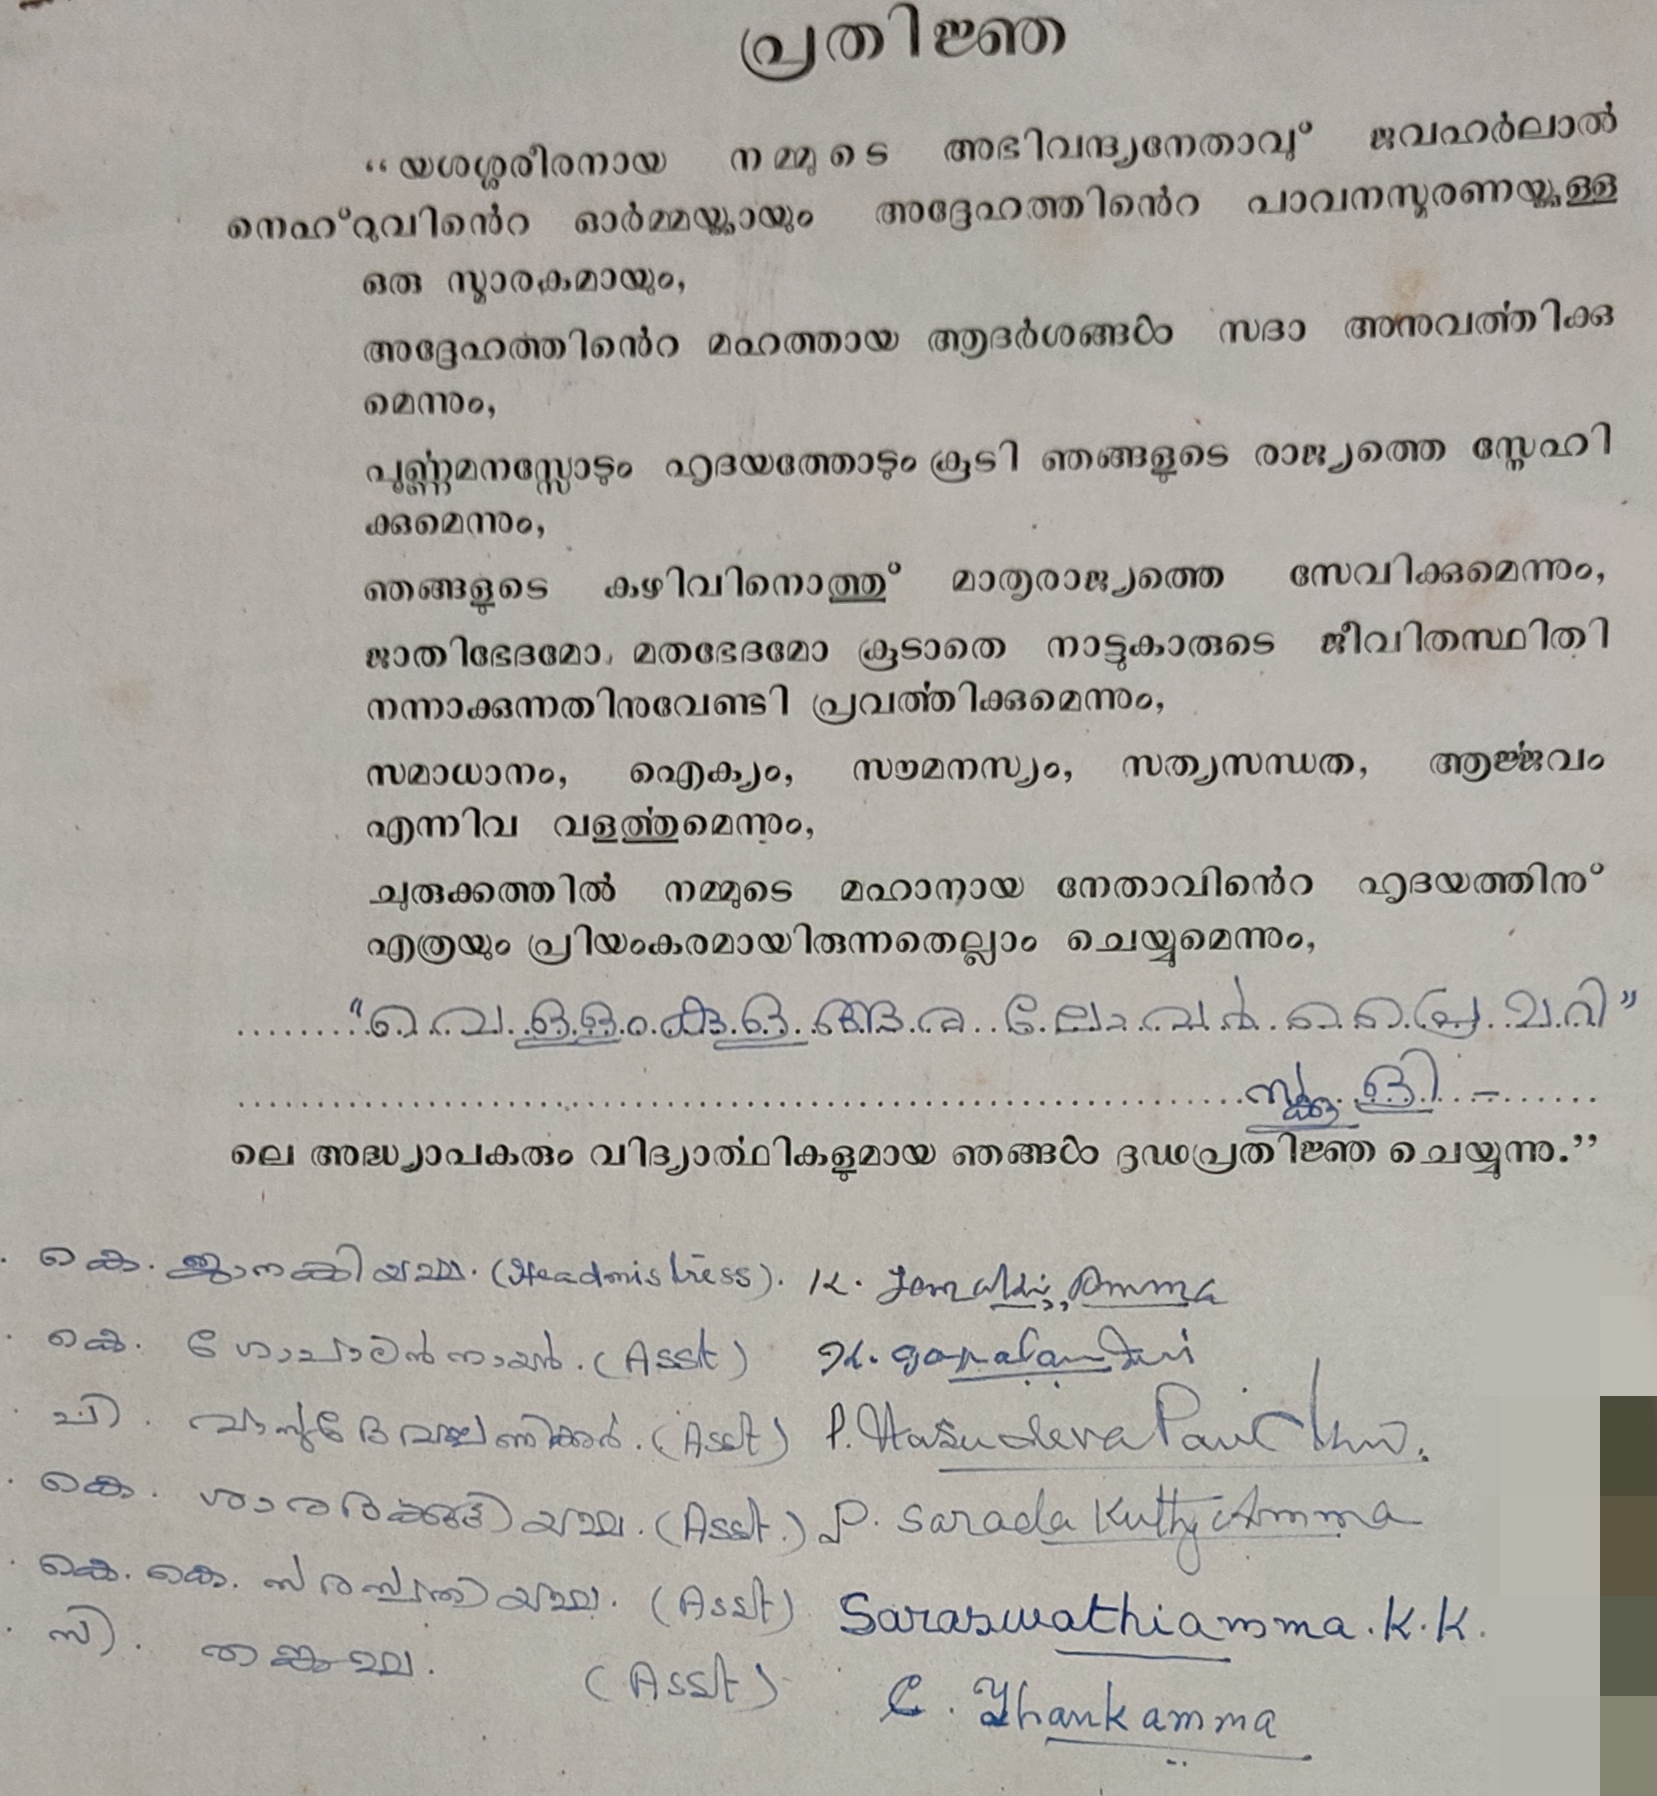 പ്രതിജ്ഞ
“യശശ്ശരീരനായ നമ്മുടെ അഭിവന്ദ്യനേതാവു് ജവഹർലാൽ
നെഹ്റുവിൻെറ ഓർമ്മയ്ക്കായും അദ്ദേഹത്തിൻെറ പാവനസ്മരണയ്ക്കുള്ള
ഒരു സ്മാരകമായും,
അദ്ദേഹത്തിൻെറ മഹത്തായ ആദർശങ്ങൾ സദാ അനുവർത്തിക്കു
മെന്നും,
പൂർണ്ണമനസ്സോടും ഹൃദയത്തോടും കൂടി ഞങ്ങളുടെ രാജ്യത്തെ സ്നേഹി
ക്കുമെന്നും,
ഞങ്ങളുടെ കഴിവിനൊത്തു് മാതൃരാജ്യത്തെ സേവിക്കുമെന്നും,
ജാതിഭേദമോ, മതഭേദമോ കൂടാതെ നാട്ടുകാരുടെ ജീവിതസ്ഥിതി
നന്നാക്കുന്നതിനുവേണ്ടി പ്രവർത്തിക്കുമെന്നും,
സമാധാനം, ഐക്യം, സൗമനസ്യം, സത്യസന്ധത, ആർജ്ജവം
എന്നിവ വളർത്തുമെന്നും,
ചുരുക്കത്തിൽ നമ്മുടെ മഹാനായ നേതാവിൻെറ ഹൃദയത്തിനു്
എത്രയും പ്രിയംകരമായിരുന്നതെല്ലാം ചെയ്യുമെന്നും,
“വെള്ളംകുളങ്ങര ലോവർ പ്രൈമറി”
സ്ക്കൂളി –
ലെ അദ്ധ്യാപകരും വിദ്യാർത്ഥികളുമായ ഞങ്ങൾ ദൃഢപ്രതിജ്ഞ ചെയ്യുന്നു.”
കെ. ജാനകിയമ്മ. (Headmistress). K. Janaki Amma
കെ. ഗോപാലൻനായർ. (Asst) K. gopalan
പി. വാസുദേവപ്പണിക്കർ. (Asst) P. Vasudeva
കെ. ശാരദക്കുട്ടിയമ്മ. (Asst.) P. Sarada Kutty Amma
കെ. കെ. സരസ്വതിയമ്മ. (Asst) Saraswathiamma. K. K.
സി. തങ്കമ്മ. (Asst) C. Thankamma